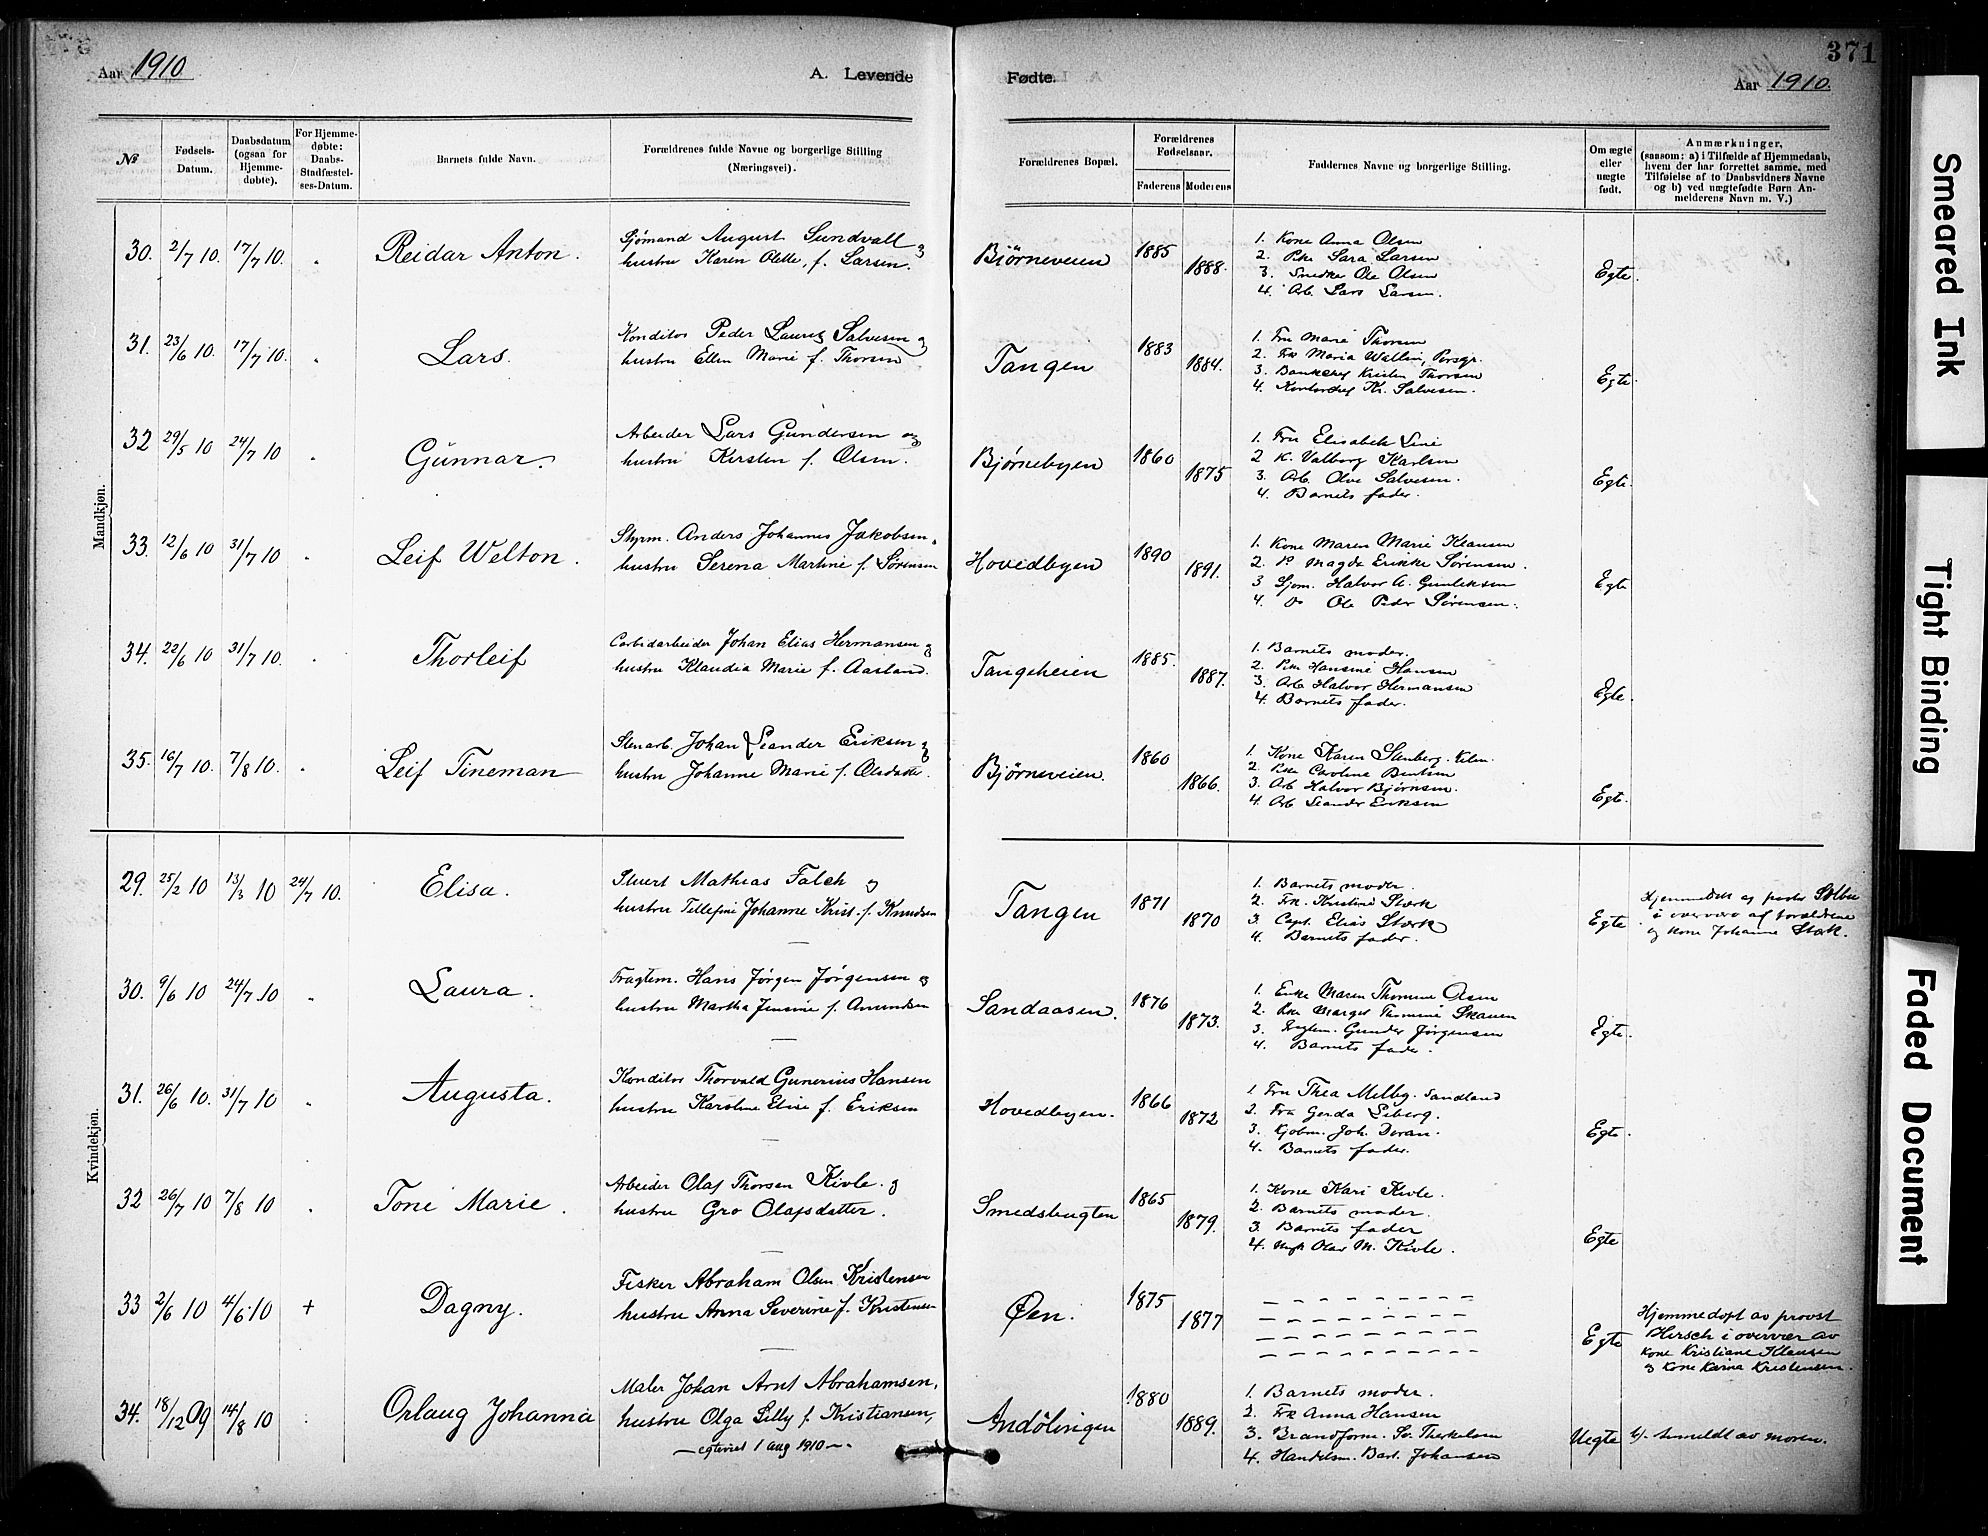 371
Aar 1910
A. Levende
Fødte.
Aar 1910.
№
Fødsels-Datum.
Daabsdatum (ogsaa for Hjemme-døbte).
For Hjemme-døbte: Daabs-Stadfæstel-ses-Datum.
Barnets fulde Navn.
Forældrenes fulde Navne og borgerlige Stilling (Næringsvei).
Forældrenes Bopæl.
Forældrenes Fødselsaar.
Faderens
Moderens
Faddernes Navne og borgerlige Stilling.
Om ægte eller uægte født.
Anmærkninger, (saasom: a) i Tilfælde af Hjemmedaab, hvem der har forrettet samme, med Tilføielse af to Daabsvidners Navne og b) ved uægtefødte Børn An-melderens Navn m. V.)
Mandkjøn.
30. 2/7 10. 17/7 10. Reidar Anton.
Sjømand August Sundvall og
hustru Karen Olette, f. Larsen.
Bjørneveien 1885 1888.
1. Kone Anna Olsen
2. Pke Sara Larsen
3. Smedke Ole Olsen
4. Arb. Lars Larsen.
Egte.
31. 23/6 10. 17/7 10. Lars.
Konditor Peder Lauretz Salvesen og
hustru Ellen Marie f. Thorsen
Tangen 1883 1884.
1. Fru Marie Thorsen
2. Frk Maria Wallin, Porsgr.
3. Bankchef Kristen Thorsen
4. Kontorchef Kr. Salvesen.
Egte.
32 29/5 10 24/7 10 Gunnar.
Arbeider Lars Gundersen og
hustru Kirsten f. Olsen.
Bjørnebyen 1860 1875
1. Fru Elisabeth Line
2 K. Valborg Karlsen
3. Arb. Olve Salvesen.
4. Barnets fader.
Egte.
33. 12/6 10 31/7 10 Leif Welton.
Styrm. Anders Johannes Jakobsen,
hustru Serena Martine f. Sørensen
Hovedbyen 1890 1891.
1. Kone Maren Marie Klausen
2. P. Magda Erikke Sørensen.
3 Sjøm. Halvor A. Gunleksen
4. do Ole Peder Sørensen.
Egte
34. 22/6 10 31/7 10. Thorleif
Carbidarbeider Johan Elias Hermansen og
hustru Klaudia Marie f. Aasland.
Tangeheien 1885. 1887.
1. Barnets moder.
2. Pke Hansine Hansen
3. Arb Halvor Hermansen
4. Barnets fader.
Egte.
35. 16/7 10. 7/8 10. Leif Tineman
Stenarb. Johan Leander Eriksen og
hustru Johanne Marie f. Olsdatter.
Bjørneveien. 1860 1866.
1. Kone Karen Stenberg.
2. Pke Caroline Bentsen
3. Arb Halvor Bjørnsen.
4. Arb Leander Eriksen
Egte.
Kvindekjøn.
29. 25/2 10 13/3 10 24/7 10. Elisa.
Stuert Mathias Falch og
hustru Tellefine Johanne Krist. f. Knudsen
Tangen 1871 1870
1. Barnets moder.
2. Frk. Kristine Stærk
3. Capt. Elias Stærk
4. Barnets fader.
Egte
Hjemmedøbt af Solbu
i overvære af forældrene
og kone Johanne Stærk.
30. 9/6 10 24/7 10 Laura.
Fragtem. Hans Jørgen Jørgensen og
hustru Martha Jensine f. Amundsen
Sandaasen. 1876 1873.
1. Enke Maren Thomine Olsen
2. Pke Margit Thomine Skauen
3. Fragtem. Gunder Jørgensen
4. Barnets fader.
Egte.
31. 26/6 10. 31/7 10 Augusta.
Konditor Thorvald Gunerius Hansen
hustru Karoline Elise f. Eriksen
Hovedbyen. 1866 1872
1. Fru Thea Melby. Sandland
2. Fru Gerda Seberg.
3. Kjøbm. Joh. Doran.
4. Barnets fader.
Egte.
32 26/7 10 7/8 10 Tone Marie.
Arbeider Olaf Thorsen Kivle. og
hustru Gro Olafsdatter.
Smedsbugten 1865 1879.
1. Kone Kari Kivle.
2. Barnets moder.
3. Barnets fader
4. Ungk Olav M. Kivle.
Egte
33 2/6 10 4/6 10 + Dagny.
Fisker Abraham Olsen Kristensen
hustru Anna Severine f. Kristensen
Øen. 1875 1877
Egte
Hjemmedøpt av provst
Hirsch i overvær av
kone Kristiane Klausen
og kone Karna Kristensen.
34. 18/12 09 14/8 10 Orlaug Johanna
Maler Johan Arnt Abrahamsen,
hustru Olga Lilly f. Kristiansen,
— egteviet 1 aug 1910 —.
Indølingen 1880 1889.
1. Barnets moder.
2. Frk Anna Hansen
3. Brandform. Sv. Therkelsen
4. Handelsm. Bart. Johansen
Uegte
b). Anmeldt av moren.
Smeared Ink
Tight Binding
Faded Document